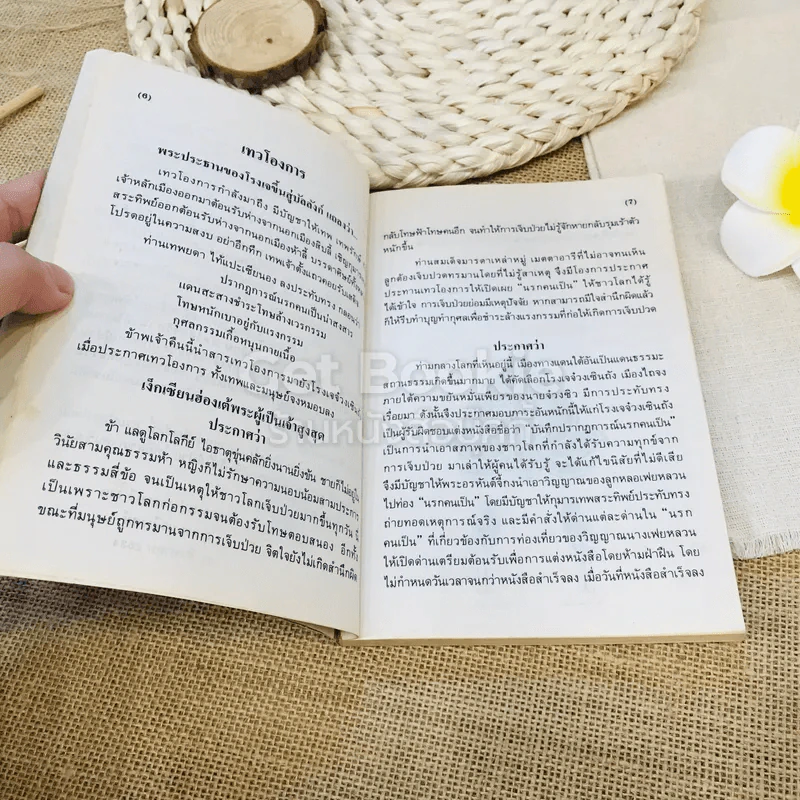 (6)
เทวโองการ
พระประธานของโรงเจขึ้นสู่บัลลังก์ แถลงว่า...
เทวโองการกำลังมาถึง มีบัญชาให้เทพ เทพรักษ์
เจ้าหลักเมืองออกมาต้อนรับห่างจากนอกเมืองสิบลี้ เชิญกุมาร
สระทิพย์ออกต้อนรับห่างจากนอกเมืองห้าลี้ บรรดาศิษย์ทั้งหลาย
โปรดอยู่ในความสงบ อย่าอึกทึก เทพเจ้าตั้งแถวคอยรับเสด็จ
ท่านเทพยดา ไท้แปะเซียนอง ลงประทับทรง กลอนว่า
ปรากฏการณ์นรกคนเป็นนำส่งสาร
แดนสะสางชำระโทษล้างเวรกรรม
โทษหนักเบาอยู่กับแรงกรรม
กุศลกรรมเกื้อหนุนภายเนื้อ
ข้าพเจ้าคืนนี้นำสารเทวโองการมายังโรงเจจ๋วงเซินถัง
เมื่อประกาศเทวโองการ ทั้งเทพและมนุษย์จงหมอบลง
เง็กเซียนฮ่องเต้พระผู้เป็นเจ้าสูงสุด
ประกาศว่า
ข้า แลดูโลกโลกีย์ ไอธาตุขุ่นคลักยิ่งนานยิ่งข้น ชายก็ไม่อยู่ใน
วินัยสามคุณธรรมห้า หญิงก็ไม่รักษาความนอบน้อมสามประการ
และธรรมสี่ข้อ จนเป็นเหตุให้ชาวโลกเจ็บป่วยมากขึ้นทุกวัน นี่
เป็นเพราะชาวโลกก่อกรรมจนต้องรับโทษตอบสนอง อีกทั้ง
ขณะที่มนุษย์ถูกทรมานจากการเจ็บป่วย จิตใจยังไม่เกิดสำนึกผิด
(7)
กลับโทษฟ้าโทษคนอีก จนทำให้การเจ็บป่วยไม่รู้จักหายกลับรุมเร้าตัว
หนักขึ้น
ท่านสมเด็จมารดาเหล่าหมู่ เมตตาอารีที่ไม่อาจทนเห็น
ลูกต้องเจ็บปวดทรมานโดยที่ไม่รู้สาเหตุ จึงมีโองการประกาศ
ประทานเทวโองการให้เปิดเผย “นรกคนเป็น” ให้ชาวโลกได้รู้
ได้เข้าใจ การเจ็บป่วยย่อมมีเหตุปัจจัย หากสามารถมีใจสำนึกผิดแล้ว
ก็ให้รีบทำบุญทำกุศลเพื่อชำระล้างแรงกรรมที่ก่อให้เกิดการเจ็บปวด
ประกาศว่า
ท่ามกลางโลกที่เห็นอยู่นี้ เมืองทางแดนใต้อันเป็นแดนธรรมะ
สถานธรรมเกิดขึ้นมากมาย ได้คัดเลือกโรงเจจ๋วงเซินถัง เมืองไถจง
ภายใต้ความขยันหมั่นเพียรของนายจ๋วงซิว มีการประทับทรง
เรื่อยมา ดังนั้นจึงประกาศมอบภาระอันหนักนี้ให้แก่โรงเจจ๋วงเซินถัง
เป็นผู้รับผิดชอบแต่งหนังสือชื่อว่า “บันทึกปรากฏการณ์นรกคนเป็น”
เป็นการนำเอาสภาพของชาวโลกที่กำลังได้รับความทุกข์จาก
การเจ็บป่วย มาเล่าให้ผู้คนได้รับรู้ จะได้แก้ไขนิสัยที่ไม่ดีเสีย
จึงมีบัญชาให้พระอรหันต์จี้กงนำเอาวิญญาณของลูกหลอเฟยหลวน
ไปท่อง “นรกคนเป็น” โดยมีบัญชาให้กุมารเทพสระทิพย์ประทับทรง
ถ่ายทอดเหตุการณ์จริง และมีคำสั่งให้ด่านแต่ละด่านใน “นรก
คนเป็น” ที่เกี่ยวข้องกับการท่องเที่ยวของวิญญาณนางเฟยหลวน
ให้เปิดด่านเตรียมต้อนรับเพื่อการแต่งหนังสือโดยห้ามฝ่าฝืน โดย
ไม่กำหนดวันเวลาจนกว่าหนังสือสำเร็จลง เมื่อวันที่หนังสือสำเร็จลง
Get Bookie
ร้านหนังสือมือสอง